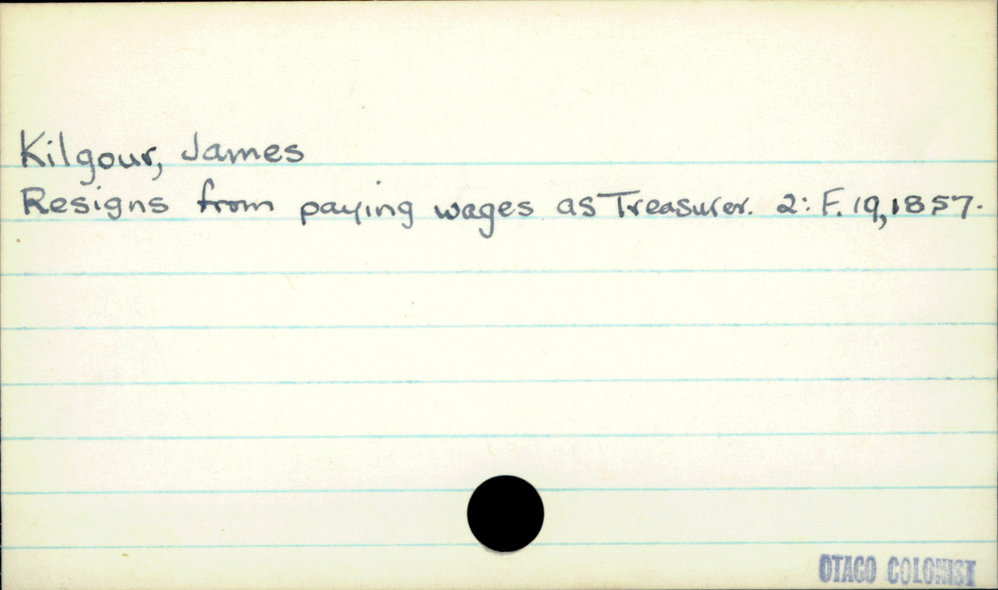 Kilgour, James
Resigns from paying wages as Treasurer. 2: F. 19, 1857.
OTAGO COLONIST